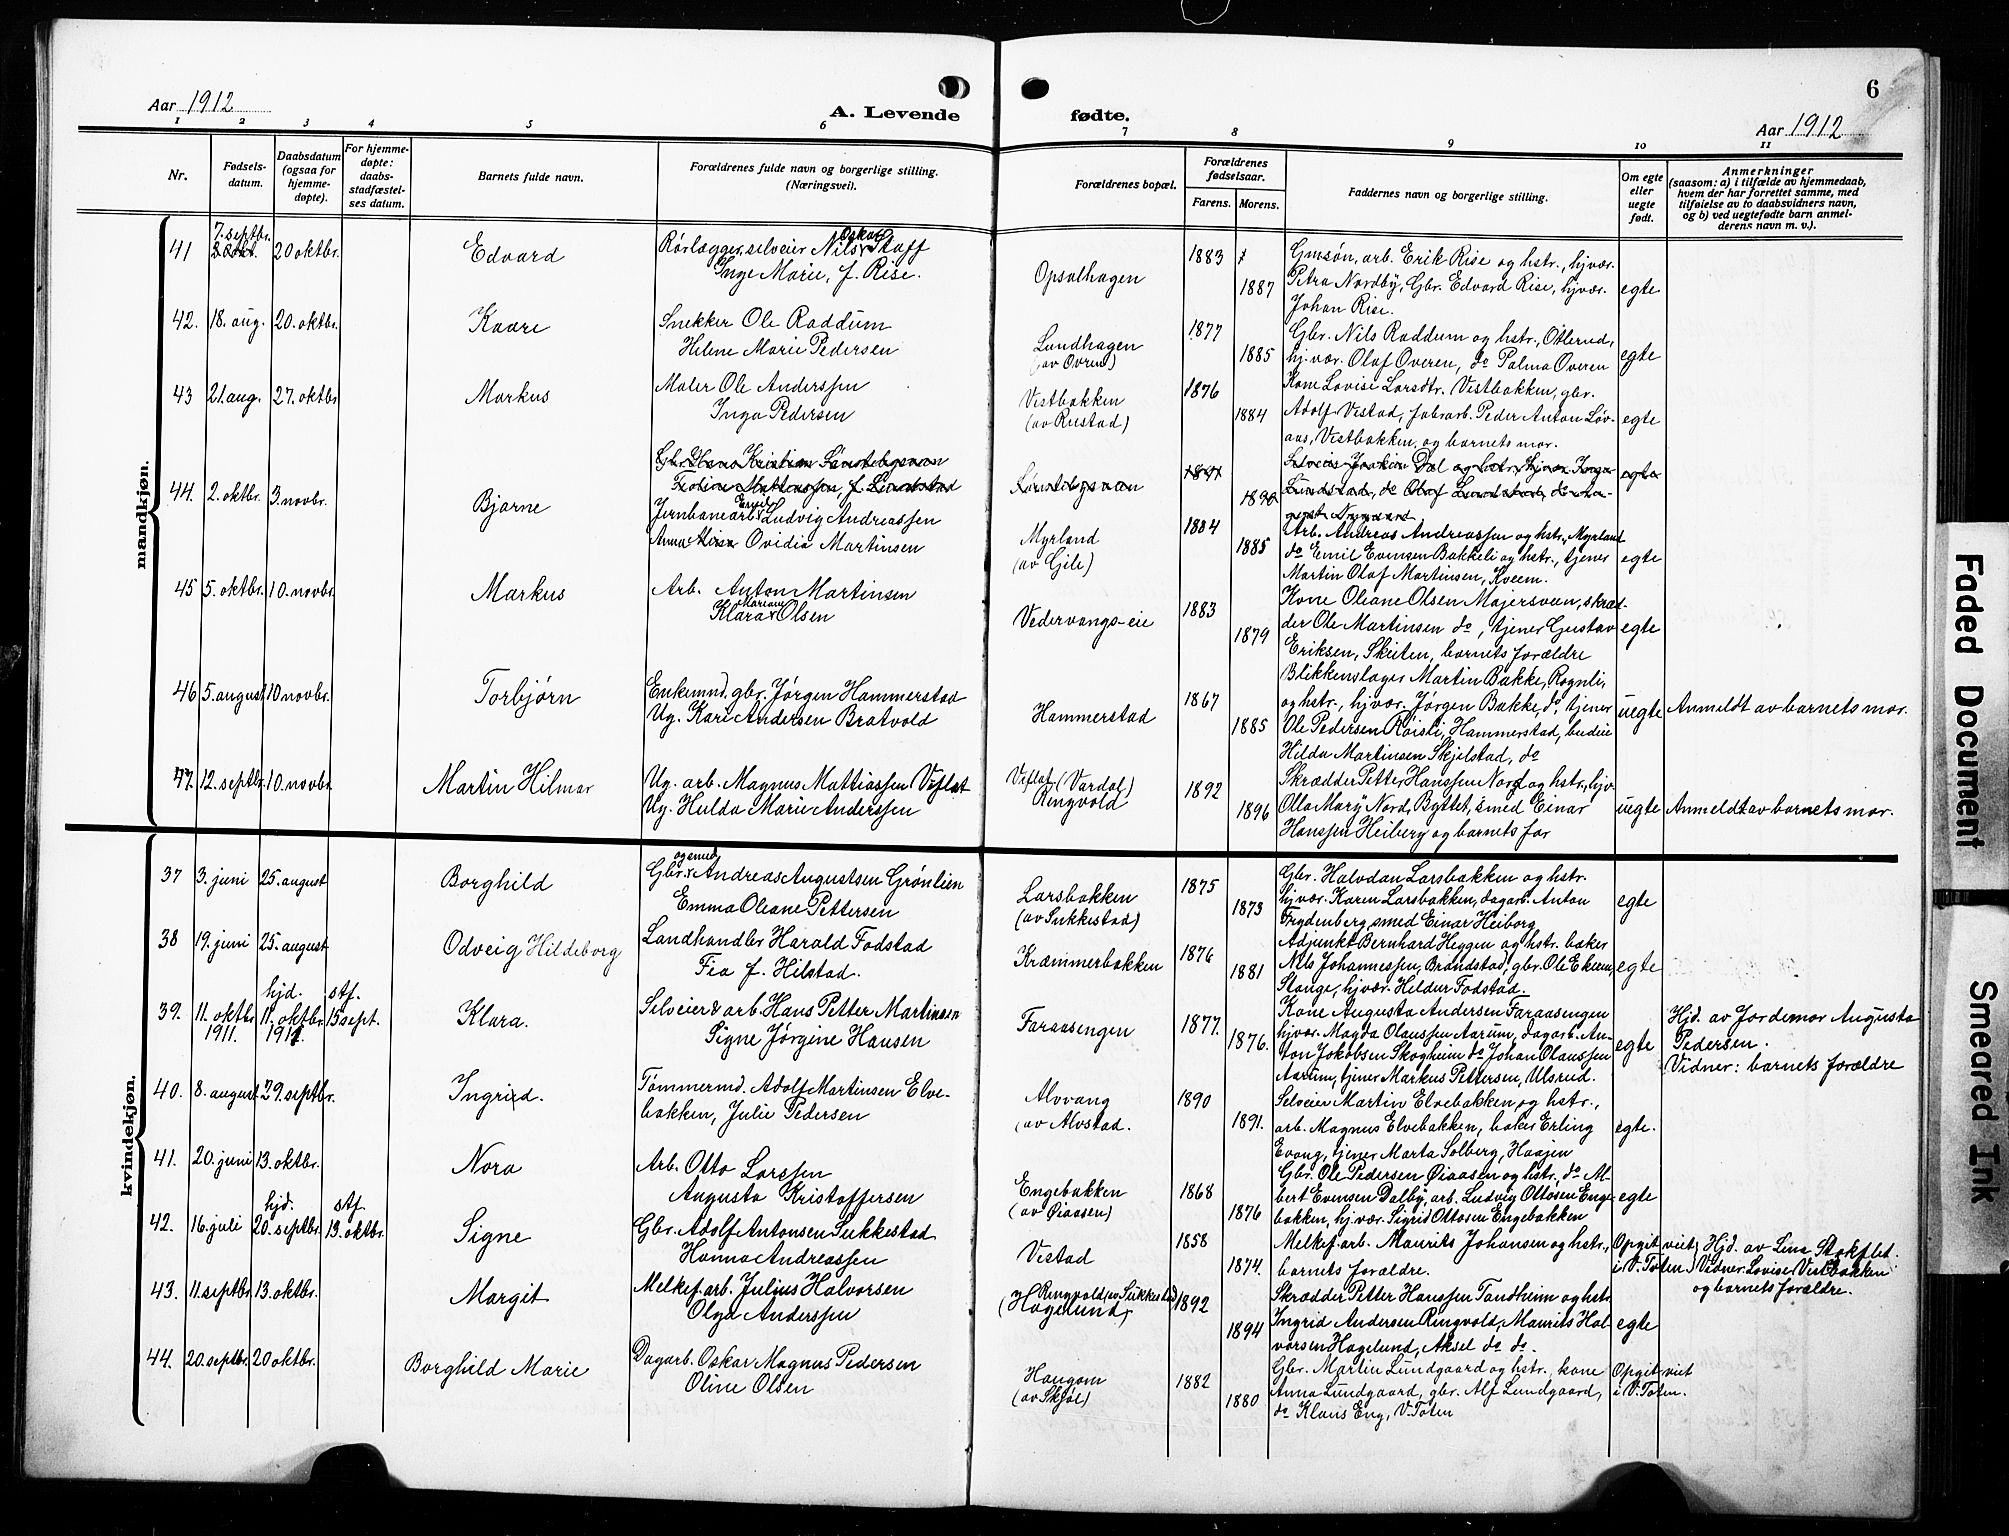 Aar 1912
A. Levende
fødte.
6
Aar 1912
1 2 3 4 5 6 7 8 9 10 11
Nr.
Fødsels-
datum.
Daabsdatum
(ogsaa for
hjemme-
døpte).
For hjemme-
døpte:
daabs-
stadfæstel-
ses datum.
Barnets fulde navn.
Forældrenes fulde navn og borgerlige stilling.
(Næringsvei).
Forældrenes bopæl.
Forældrenes
fødselsaar.
Farens. Morens.
Faddernes navn og borgerlige stilling.
Om egte
eller
uegte
født.
Anmerkninger
(saasom: a) i tilfælde av hjemmedaab,
hvem der har forrettet samme, med
tilføielse av to daabsvidners navn,
og b) ved uegtefødte barn anmel-
derens navn m. v.).
mandkjøn.
41 7. septbr. 20 oktbr. Edvard
Rørlægger, selveier Nils Oskar Staff
Inge Marie, f. Rise.
Opsalhagen
1883
1887
Gmsøn, arb. Erik Rise og hstr., hjvær.
Petra Nordby, Gbr. Edvard Rise, hjvær.
Johan Rise.
egte
42. 18. aug. 20. oktbr. Kaare
Snekker Ole Raddum
Helene Marie Pedersen
Lundhagen
(av Øvren)
1877
1885
Gbr. Nils Raddum og hstr., Otterud,
hj.vær. Olaf Overen, do Palma Overen
egte
43 21. aug. 27. oktbr Markus
Maler Ole Anderssen
Inga Pedersen
Vestbakken
(av Rustad)
1876
1884
Kone Lovise Larsdtr. Vestbakken, gbr.
Adolf Vestad, fabrarb. Peder Anton Løv-
aas, Vestbakken, og barnets mor.
egte
44. 2. oktbr. 3. novbr. Bjarne
Gbr. Hans Kristian Sønstebysveen
Trotine Mattiassen, f. Lundstad
Jernbanearb. Enevold Ludvig Andreassen
Anna Ovidia Martinsen
Sønstebysveen
Myrland
(av Gjile)
1890
1884
1885
Selveier Joakim Dal og hstr., hjvær. Inga
Lundstad, do Olaf Lundstad, do
Arb. Andreas Andreassen og hstr., Myrland
do Emil Evensen Bakkeli og hstr., tjener
Martin Olaf Martinsen, Kveem.
egte
egte
45 5. oktbr. 10. novbr. Markus
Arb. Anton Martinsen
Klara Mariane Olsen
Vedervangs-eie
1883
1879
Kone Oleane Olsen Majersveen, skræd-
der Ole Martinsen do, tjener Gustav
Eriksen, Skeiten, barnets forældre
egte
46 5. august 10 novbr. Torbjørn
Enkemnd. gbr. Jørgen Hammerstad
Ug. Kari Andersen Bratvold
Hammerstad
1867
1885
Blikkenslager Martin Bakke, Rognli,
og hstr., hjvær. Jørgen Bakke, do, tjener
Ole Pedersen Røisli, Hammerstad, budeie
Hilda Martinsen Skjelstad, do
uegte
Anmeldt av barnets mor.
47. 12. septbr. 10. novbr. Martin Hilmar
Ug. arb. Magnus Mattiassen Viflat
Ug. Hulda Marie Anderssen
Viflat (Vardal)
Ringvold
1892
1896
Skrædder Petter Hanssen Nord og hstr., hjv.
Olla Mary Nord, Byttet, smed Einar
Hanssen Heiberg og barnets far
uegte
Anmeldt av barnets mor.
kvindekjøn.
37 3. juni 25. august Borghild
Gbr. og smed Andreas Augustsen Grønlien
Emma Oleane Pettersen
Larsbakken
(av Sukkestad)
1875
1873
Gbr. Halvdan Larsbakken og hstr.
hjvær. Karen Larsbakken, dagarb. Anton
Frydenberg, smed Einar Heiborg
egte
38 19. juni 25. august Odveig Hildeborg
Landhandler Harald Fodstad
Fia f. Hilstad.
Kræmmerbakken
1876
1881
Adjunkt Bernhard Heggen og hstr. baker
Nils Johannessen, Brandstad, gbr. Ole Ekeem,
Stange, hjvær. Heldur Fodstad.
egte
39. 11. oktbr 1911. hjd. 11. oktbr. 1911. stf. 15 sept. Klara.
Selveier & arb. Hans Petter Martinsen
Signe Jørgine Hansen
Faraasengen
1877.
1876.
Kone Augusta Andersen Faraasengen
hjvær. Magda Olaussen Aarum, dagarb. An-
ton Jakobsen Skogheim do Johan Olaussen
Aarum, tjener Markus Pettersen, Ulsrud.
egte
Hjd. av Jordemor Augusta
Pedersen.
Vidner: barnets forældre
40. 8. august 29. septbr. Ingrid.
Tømmermd. Adolf Martinsen Elve-
bakken, Julie Pedersen
Alvvang
(av Alvstad.
1890
1891.
Selveier Martin Elvebakken og hstr.,
arb. Magnus Elvebakken, baker Erling
Evang, tjener Marta Solberg, Haajen
egte.
41. 20. juni 13. oktbr. Nora
Arb. Otto Larssen
Augusta Kristoffersen
Engebakken
(av Øiaasen)
1868
1876
Gbr. Ole Pedersen Øiaasen og hstr. do Al-
bert Evensen Dalby, arb. Ludvig Ottosen Enge-
bakken, hj.vær. Sigrid Ottosen Engebakken
egte
42. 16. juli hjd. 20. septbr. stf. 13. oktbr. Signe
Gbr. Adolf Antonsen Sukkestad
Hanna Andreassen
Vestad
1858
1874.
Melkef.arb. Maurits Johansen og hstr.,
barnets forældre.
Opgit viet
i V. Toten.
Hjd. av Lina Stokflet.
Vidner: Lovise Vestbakken
og barnets forældre.
43. 11. septbr. 13. oktbr. Margit
Melkef.arb. Julius Halvorsen
Olga Anderssen
Ringvold (av Sukkestad)
(Hagelund)
1892
1894
Skrædder Petter Hanssen Tandheim og hstr
Ingrid Andersen Ringvold, Maurits Hal-
vorsen Hagelund, Aksel do do.
egte
44. 20. septbr. 20 oktbr. Borghild Marie
Dagarb. Oskar Magnus Pedersen
Oline Olsen
Haugom
(av Skjøl)
1882
1880
Gbr. Martin Lundgaard og hstr., kone
Anna Lundgaard, gbr. Alf Lundgaard,
do Klaus Eng, V. Toten
Opgit viet
i V. Toten.
Faded Document
Smeared Ink